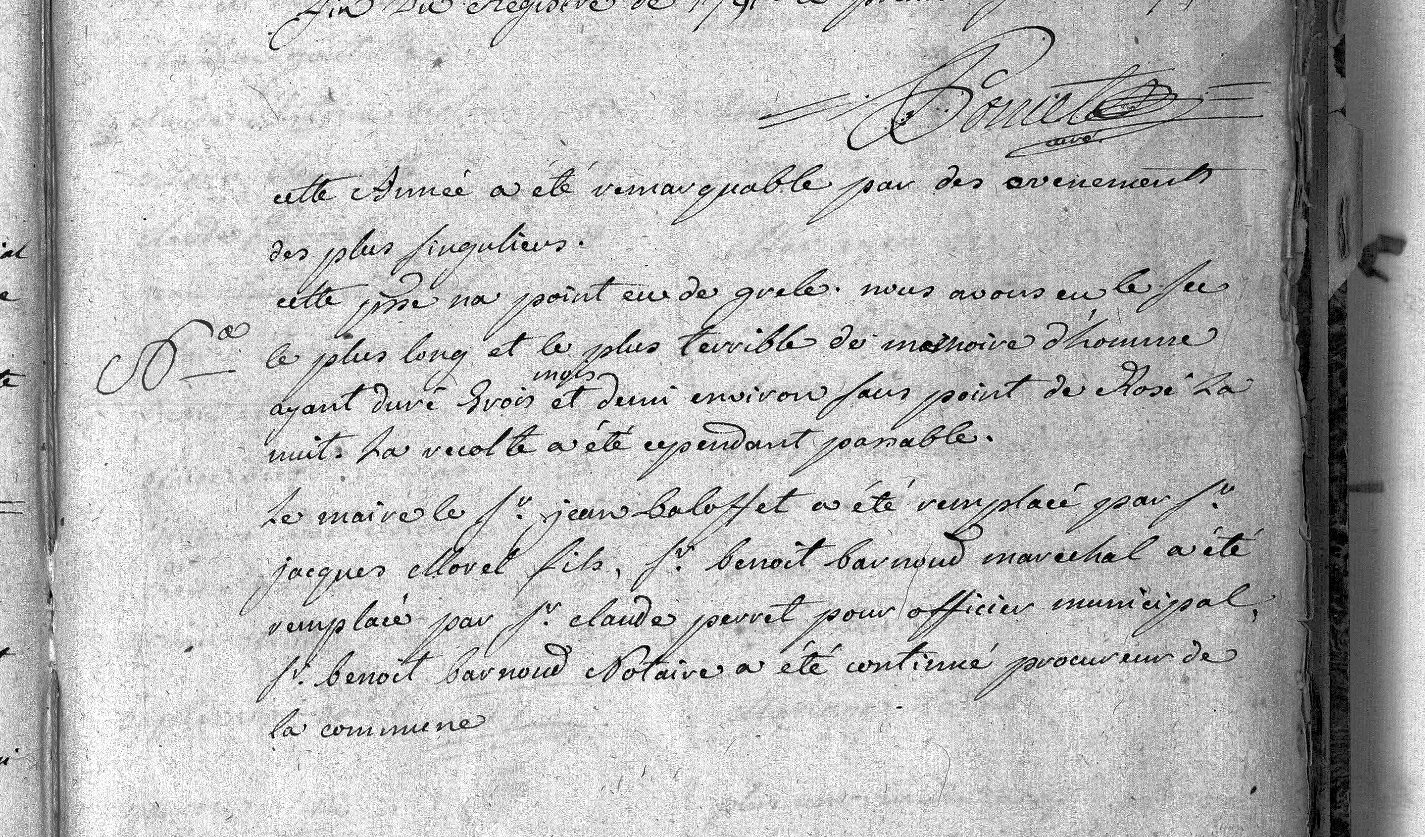 fin du Registre de 1791 le
cette Année a été remarquable par des evenements
des plus singuliers.
cette psse na point eu de grele. nous avons eu le sec
Na
le plus long et le plus terrible de memoire d'homme
mois
ayant duré trois et demi environ sans point de Rosé la
nuit. La recolte a été cependant passable.
Le maire le sr. jean baloffet a été remplacé par sr.
jacques Morel fils, sr. benoit barnoud marechal a été
remplacé par sr. claude perret pour officier municipal,
sr. benoit barnoud Notaire a été continué procureur de
la commune